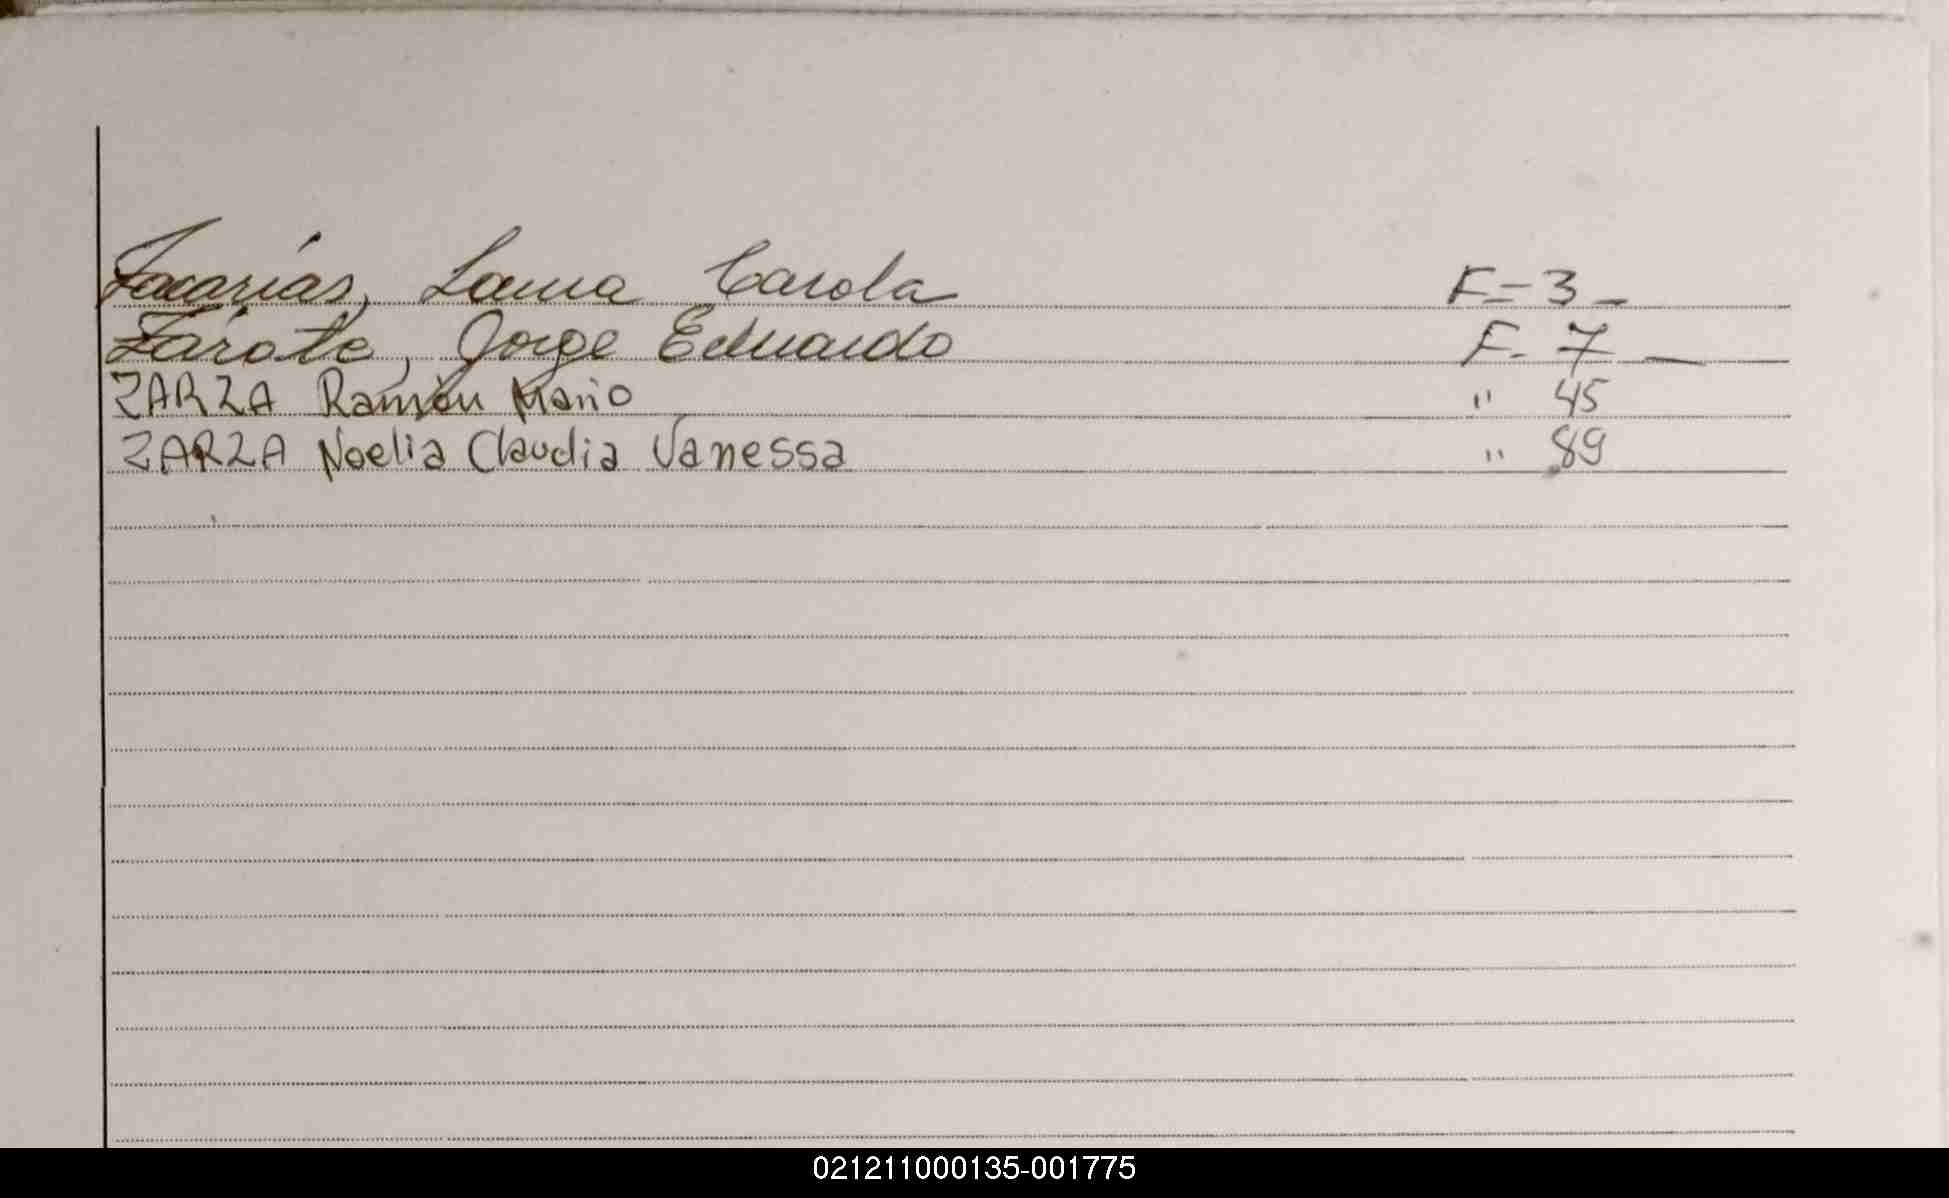 Zacarías, Laura Carola F=3_
Zárate, Jorge Eduardo F- 7 —
ZARZA Ramón Mario " 45
ZARZA Noelia Claudia Vanessa " 89
021211000135-001775